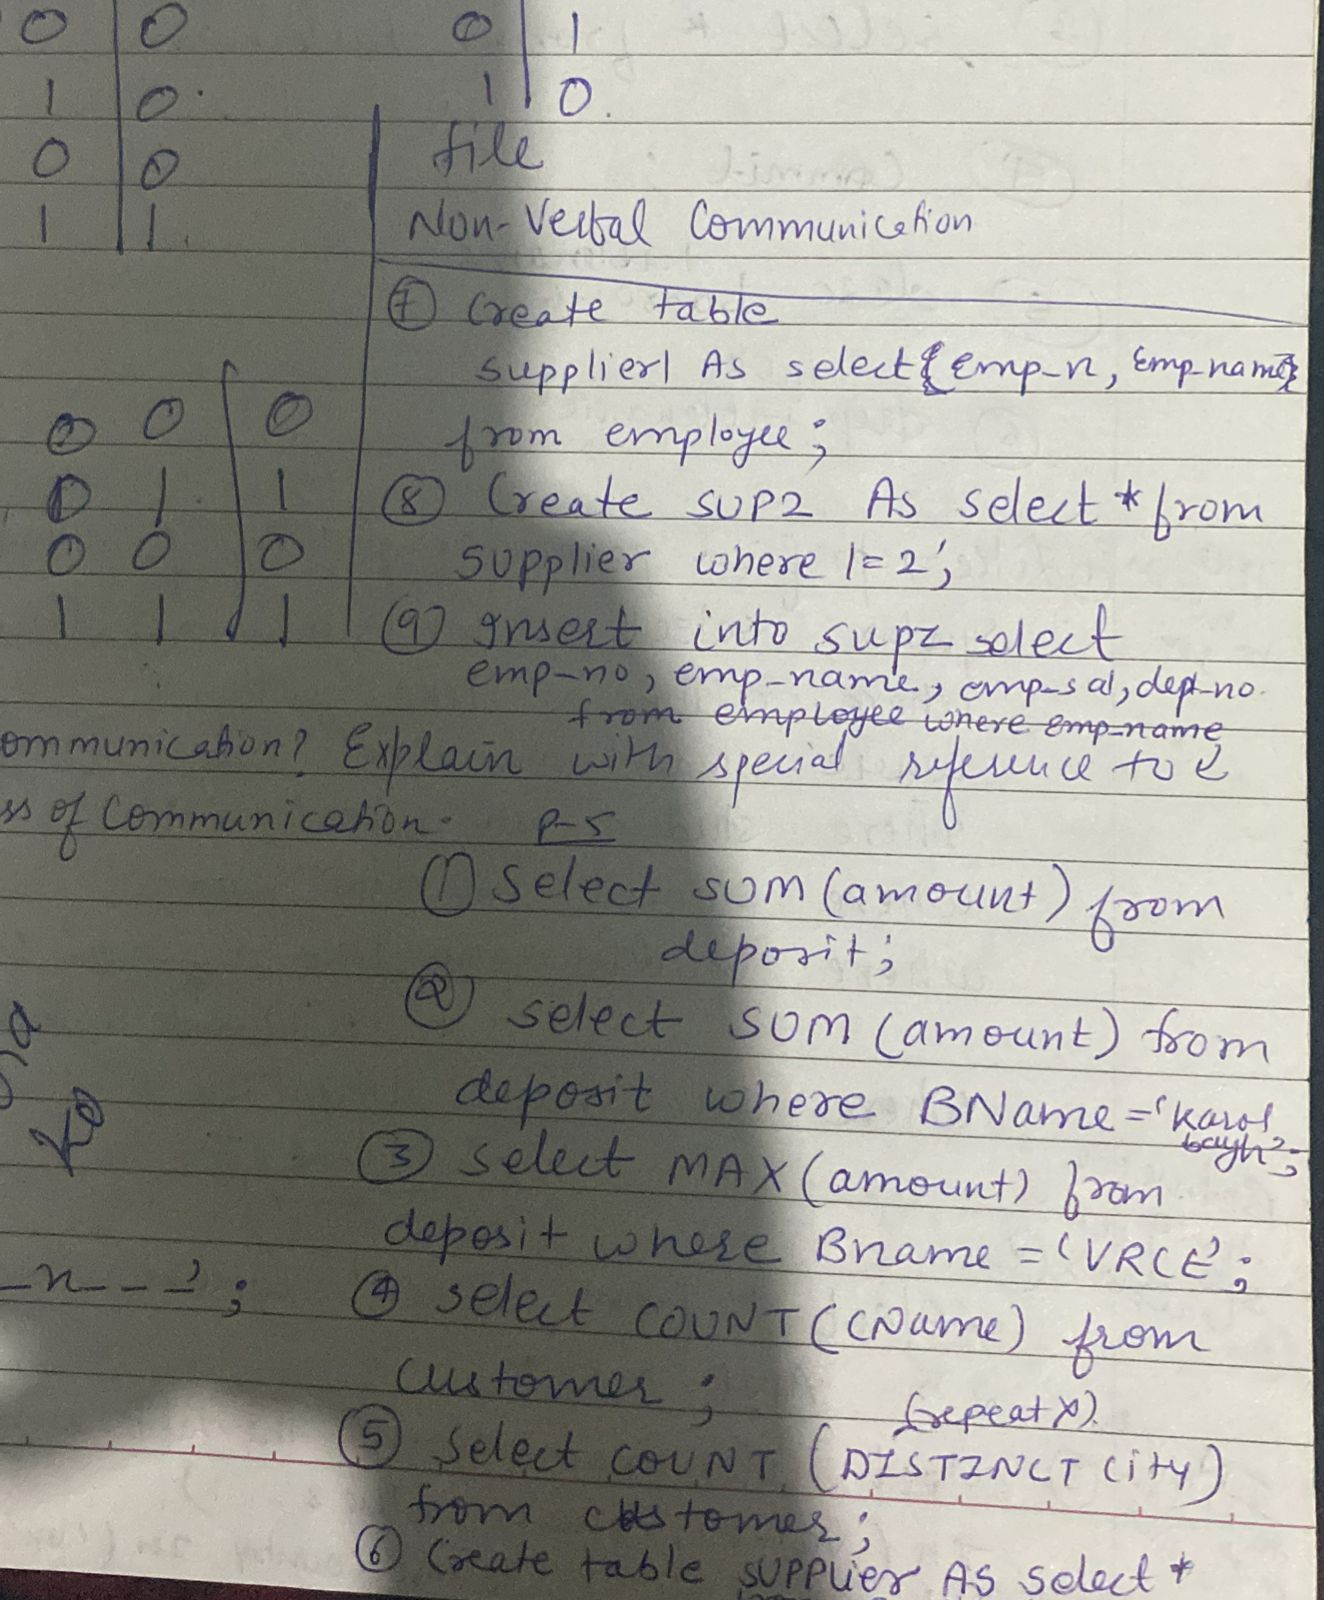 0 | 0
0 | 1
1 | 0
1 | 0
0 | 0
1 | 1
file
Non-Verbal Communication
⑦ Create table
supplier1 As select {emp-n, Emp-name}
from employee;
⑧ Create SUP2 As select * from
supplier where 1=2;
⑨ Insert into sup2 select
emp-no, emp-name, emp-sal, dept-no.
from employee where emp-name
0 0 | 0
0 1 | 1
0 0 | 0
1 1 | 1
ommunication? Explain with special reference to
ss of Communication.
P-5
① Select SUM (amount) from
deposit;
② select SUM (amount) from
deposit where BName = 'Karol
bagh';
③ select MAX (amount) from
deposit where Bname = 'VRCE';
④ select COUNT (CName) from
customer;
(repeat X)
⑤ Select COUNT (DISTINCT City)
from customer;
⑥ Create table SUPPLIER AS select *
ko
-n---';